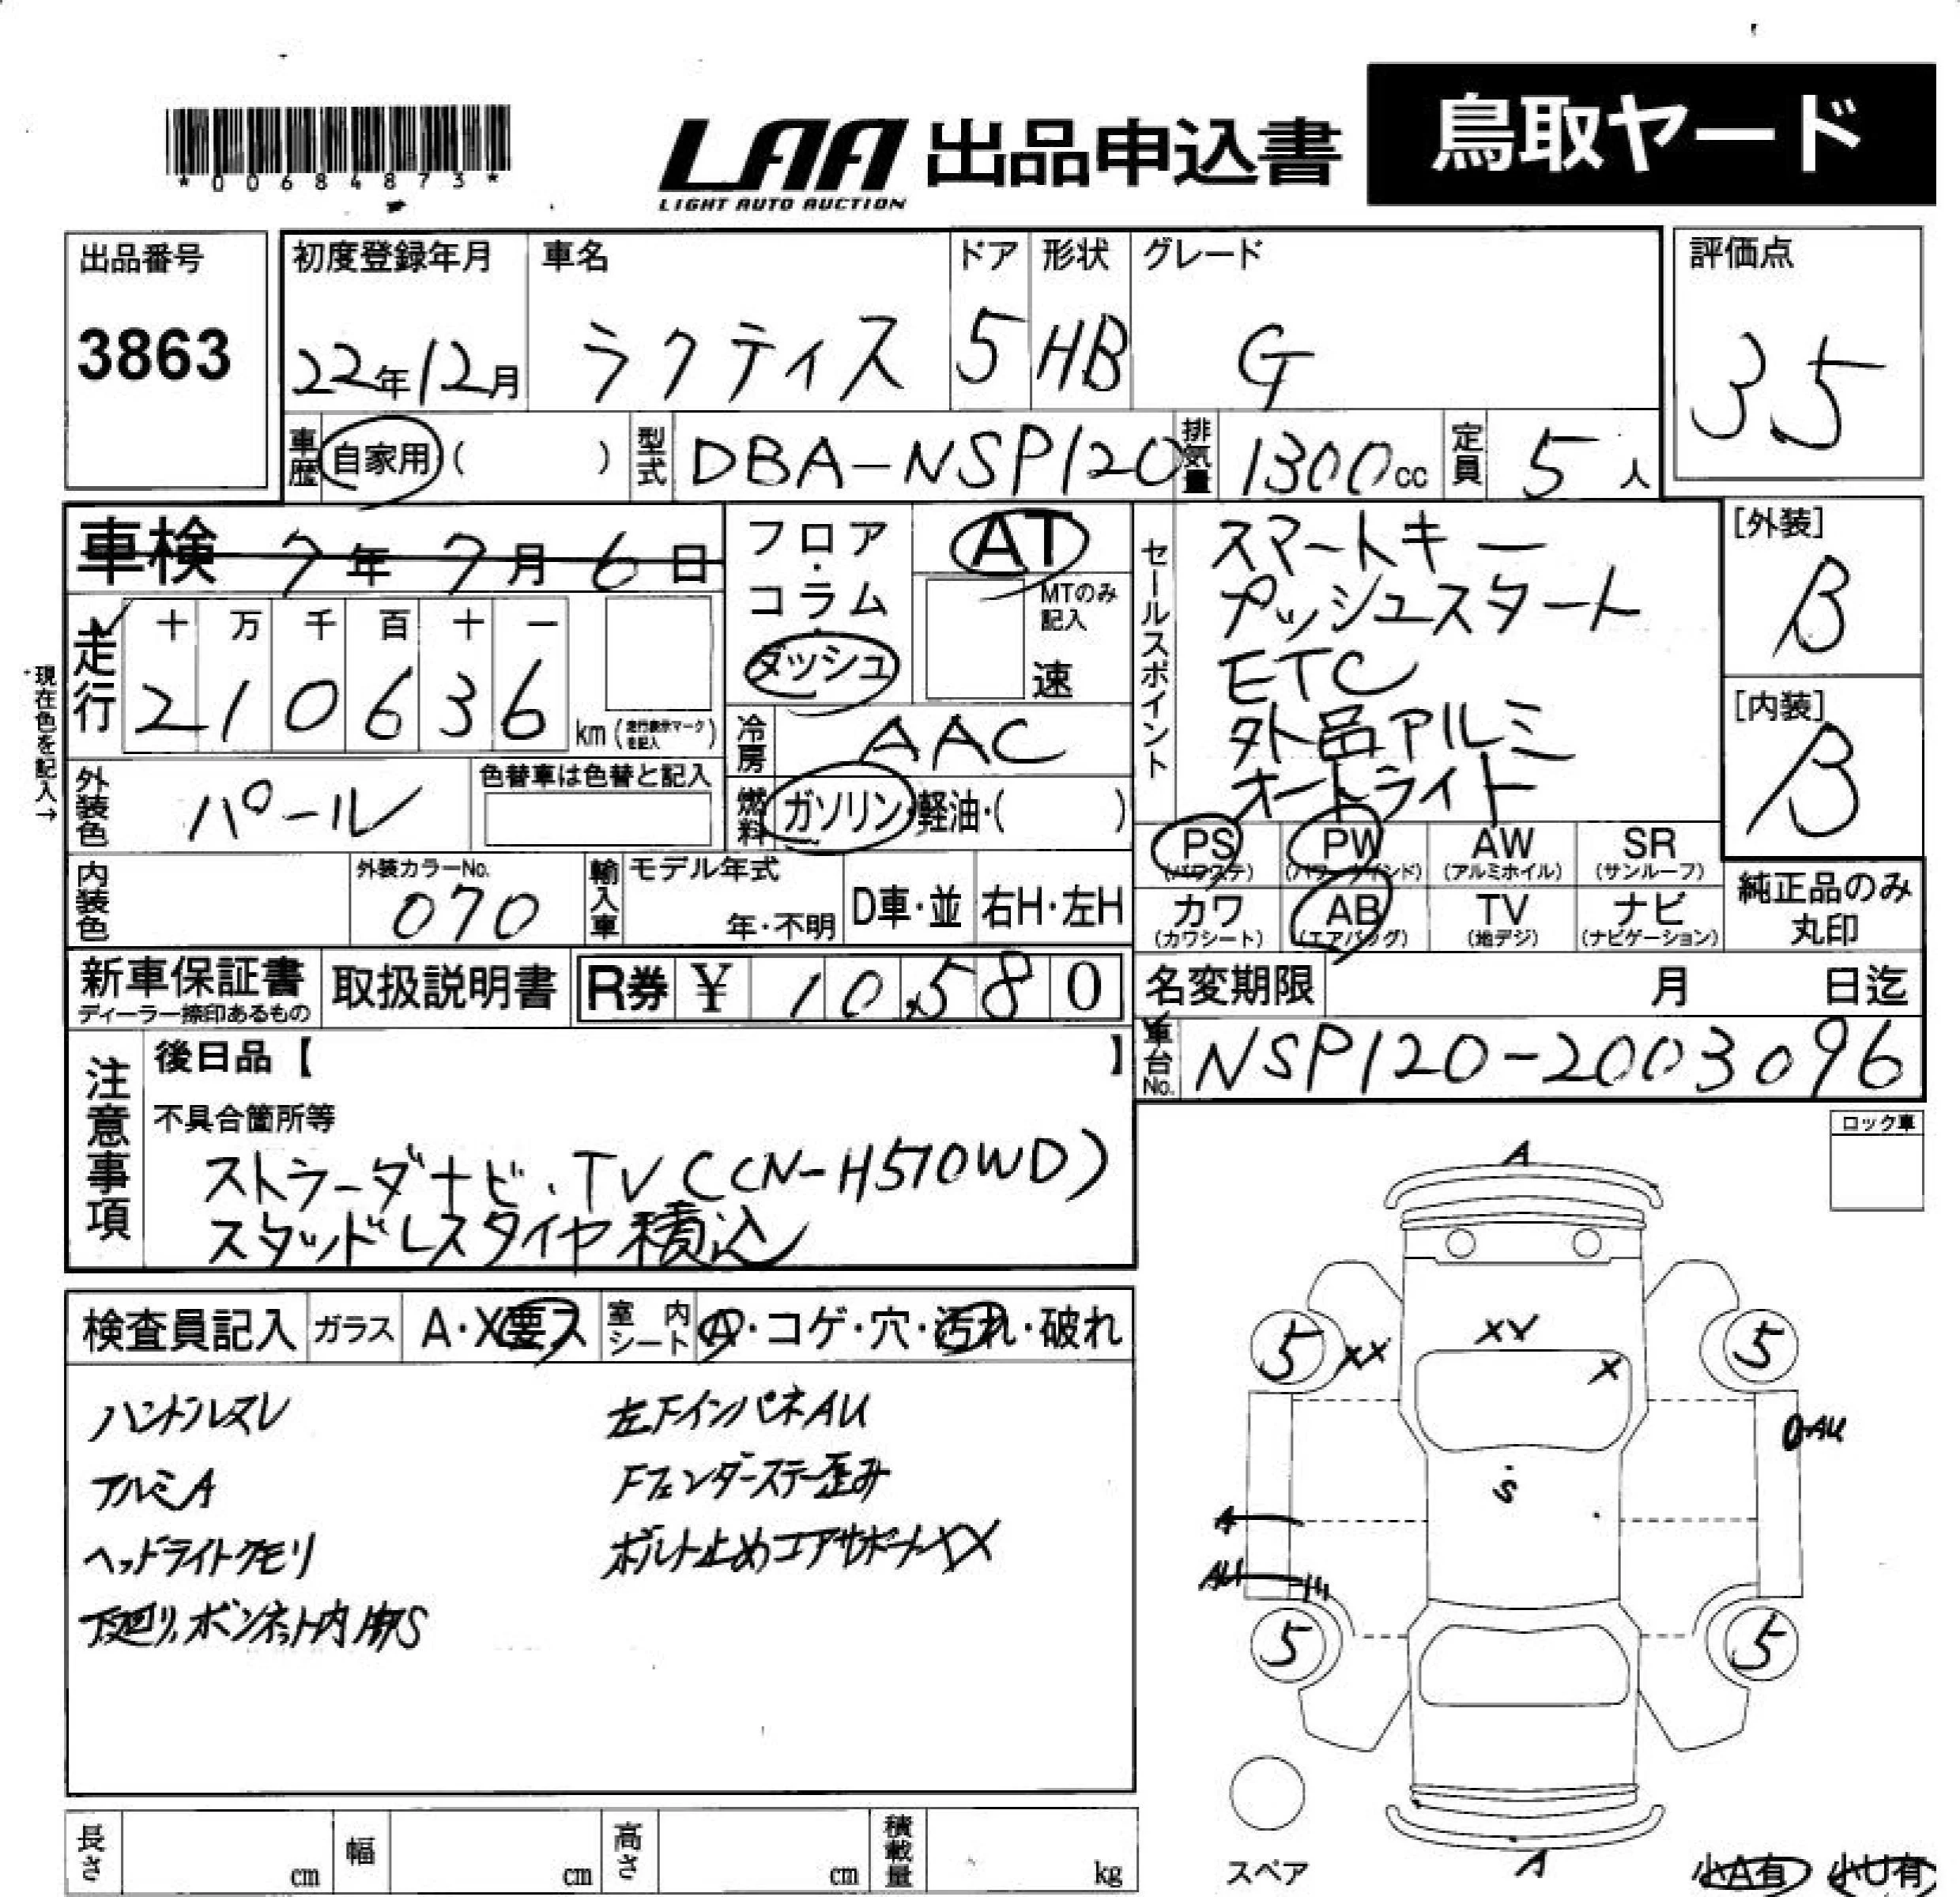 *00684873*
LAA 出品申込書
LIGHT AUTO AUCTION
鳥取ヤード
出品番号
3863
初度登録年月
22年12月
車名
ラクティス
ドア
5
形状
HB
グレード
G
評価点
3.5
車歴
自家用( )
型式
DBA-NSP120
排気量
1300cc
定員
5人
車検 7年7月6日
フロア・コラム・ダッシュ
AT
MTのみ記入
速
セールスポイント
スマートキー
プッシュスタート
ETC
外品アルミ
オートライト
[外装]
B
[内装]
B
現在色を記入→
走行
十 万 千 百 十 一
2 1 0 6 3 6
km(走行表示マークを記入)
冷房
AAC
外装色
パール
色替車は色替と記入
燃料
ガソリン・軽油・( )
PS
(パワステ)
PW
(パワーウインド)
AW
(アルミホイル)
SR
(サンルーフ)
内装色
外装カラーNo.
070
輸入車
モデル年式
年・不明
D車・並
右H・左H
カワ
(カワシート)
AB
(エアバッグ)
TV
(地デジ)
ナビ
(ナビゲーション)
純正品のみ
丸印
新車保証書
ディーラー捺印あるもの
取扱説明書
R券 ¥ 10,580
名変期限
月 日迄
車台No.
NSP120-2003096
注意事項
後日品【 】
不具合箇所等
ストラーダナビ、TV(CN-H510WD)
スタッドレスタイヤ積込
ロック車
検査員記入
ガラス
A・X要ス
室内
シート
A・コゲ・穴・汚れ・破れ
ハンドルスレ
アルミA
ヘッドライトクモリ
下廻リ、ボンネット内S
左FインパネAU
Fフェンダーステー歪み
ボルト止めコアサポートXX
A
5
XX
XV
X
5
AU
S
A
AU
5
5
A
スペア
長さ
cm
幅
cm
高さ
cm
積載量
kg
小A有
小U有